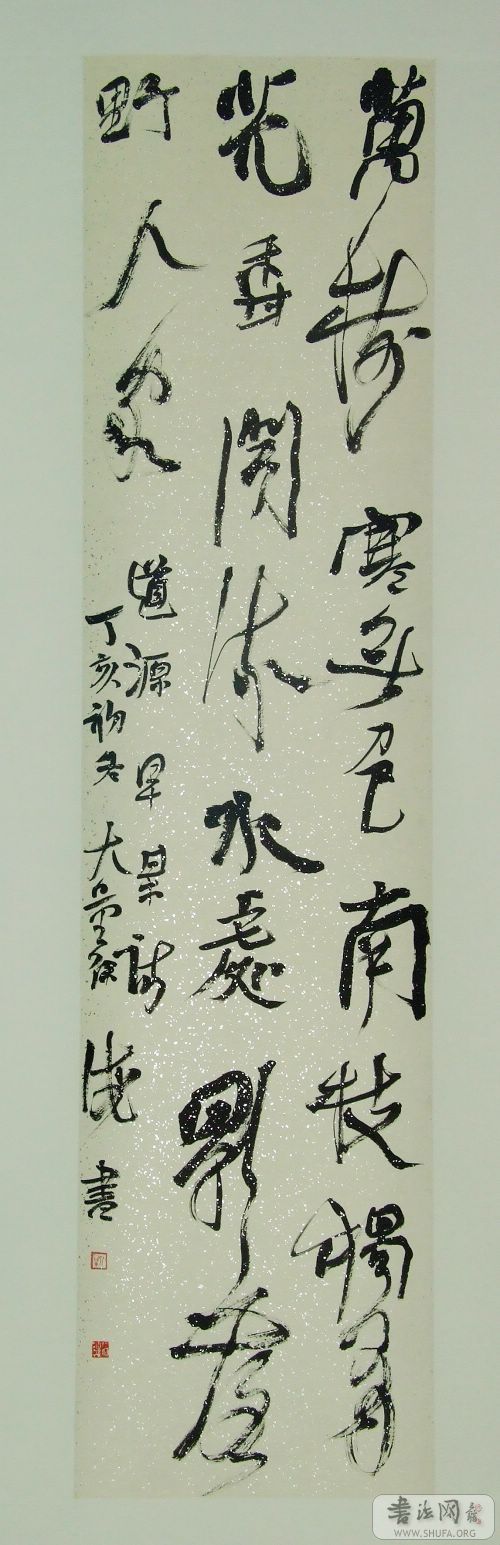 萬樹寒無色南枝獨有
花香聞流水處影落
野人家
道源早梅詩
丁亥初冬 大 書
書法网
WWW.SHUFA.ORG